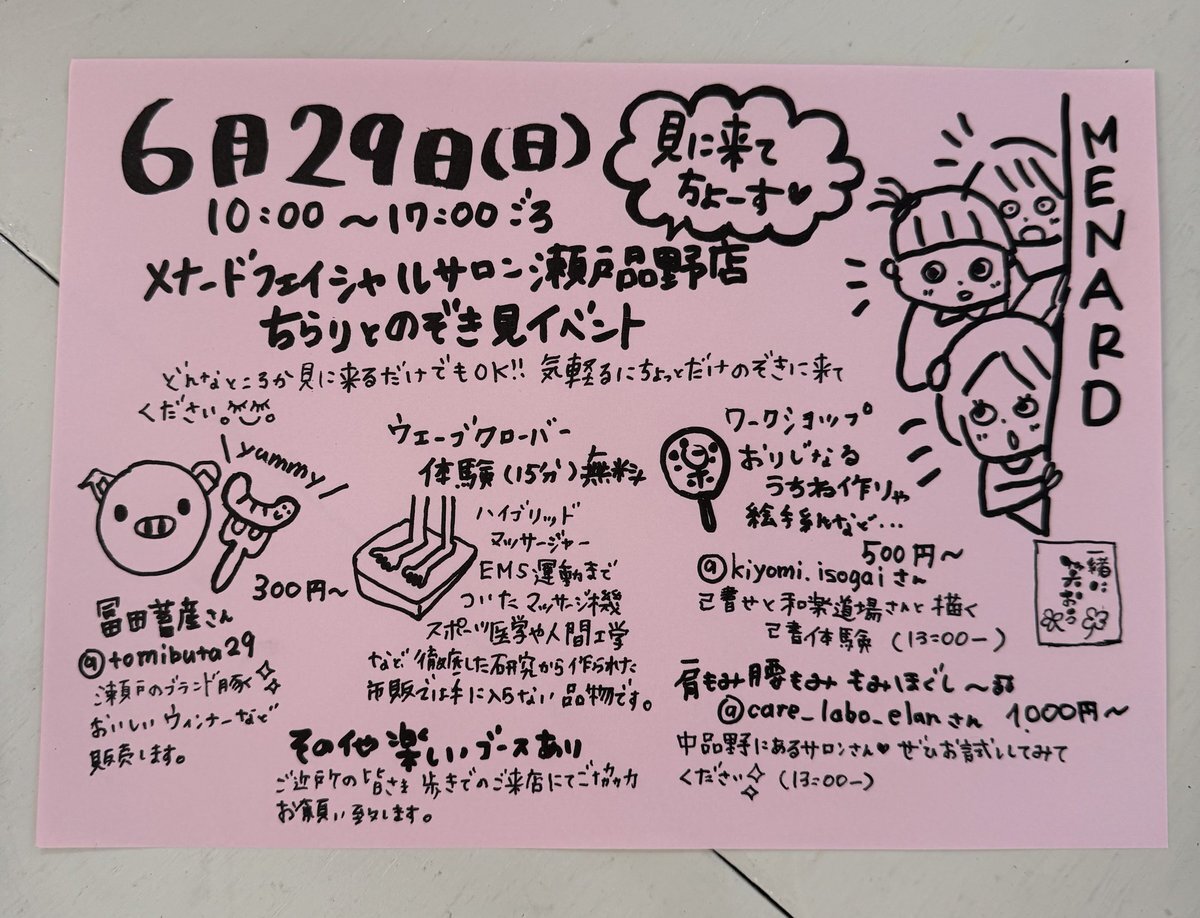 6月29日(日)
10:00〜17:00ごろ
見に来て
ちょーす♥
MENARD
メナードフェイシャルサロン瀬戸品野店
ちらりとのぞき見イベント
どんなところか見に来るだけでもOK!! 気軽るにちょっとだけのぞきに来て
ください。
yummy
300円〜
冨田畜産さん
@tomibuta29
瀬戸のブランド豚
おいしいウィンナーなど
販売します。
ウェーブクローバー
体験(15分)無料
ハイブリッド
マッサージャー
EMS運動まで
ついたマッサージ機
スポーツ医学や人間工学
など徹底した研究から作られた
市販では手に入らない品物です。
楽
ワークショップ
おりじなる
うちわ作りや
絵手紙など...
500円〜
@kiyomi.isogaiさん
己書せと和楽道場さんと描く
己書体験 (13:00ー)
一緒に
笑おう
肩もみ腰もみ もみほぐし〜
@care_labo_elanさん 1000円〜
中品野にあるサロンさん♥ ぜひお試ししてみて
ください (13:00ー)
その他楽しいブースあり
ご近所の皆さま 歩きでのご来店にてご協力
お願い致します。